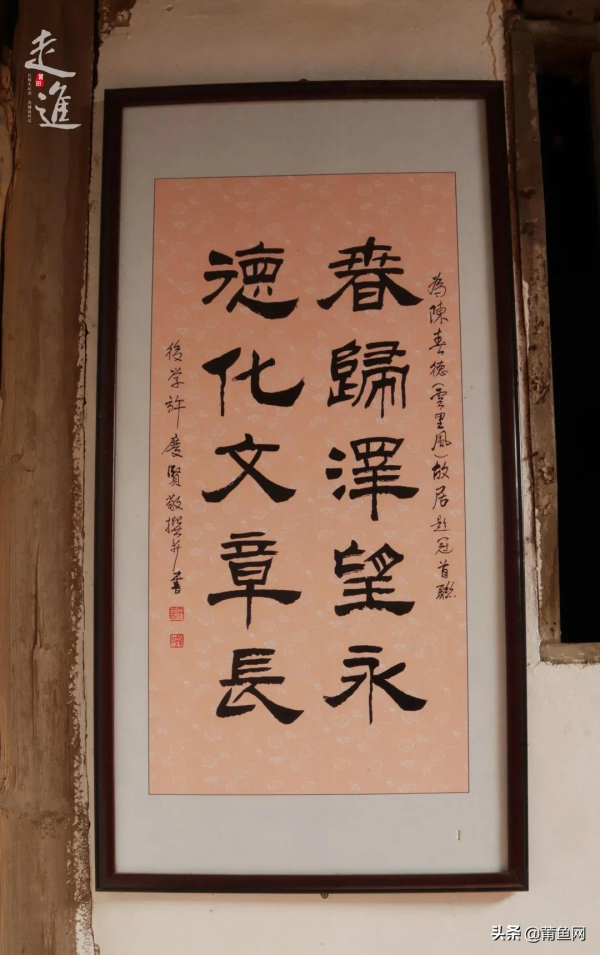 走進
莆田
為陳春德（雲里風）故居題冠首聯
春歸澤望永
德化文章長
後学許慶賢敬撰并書
头条 @莆鱼网